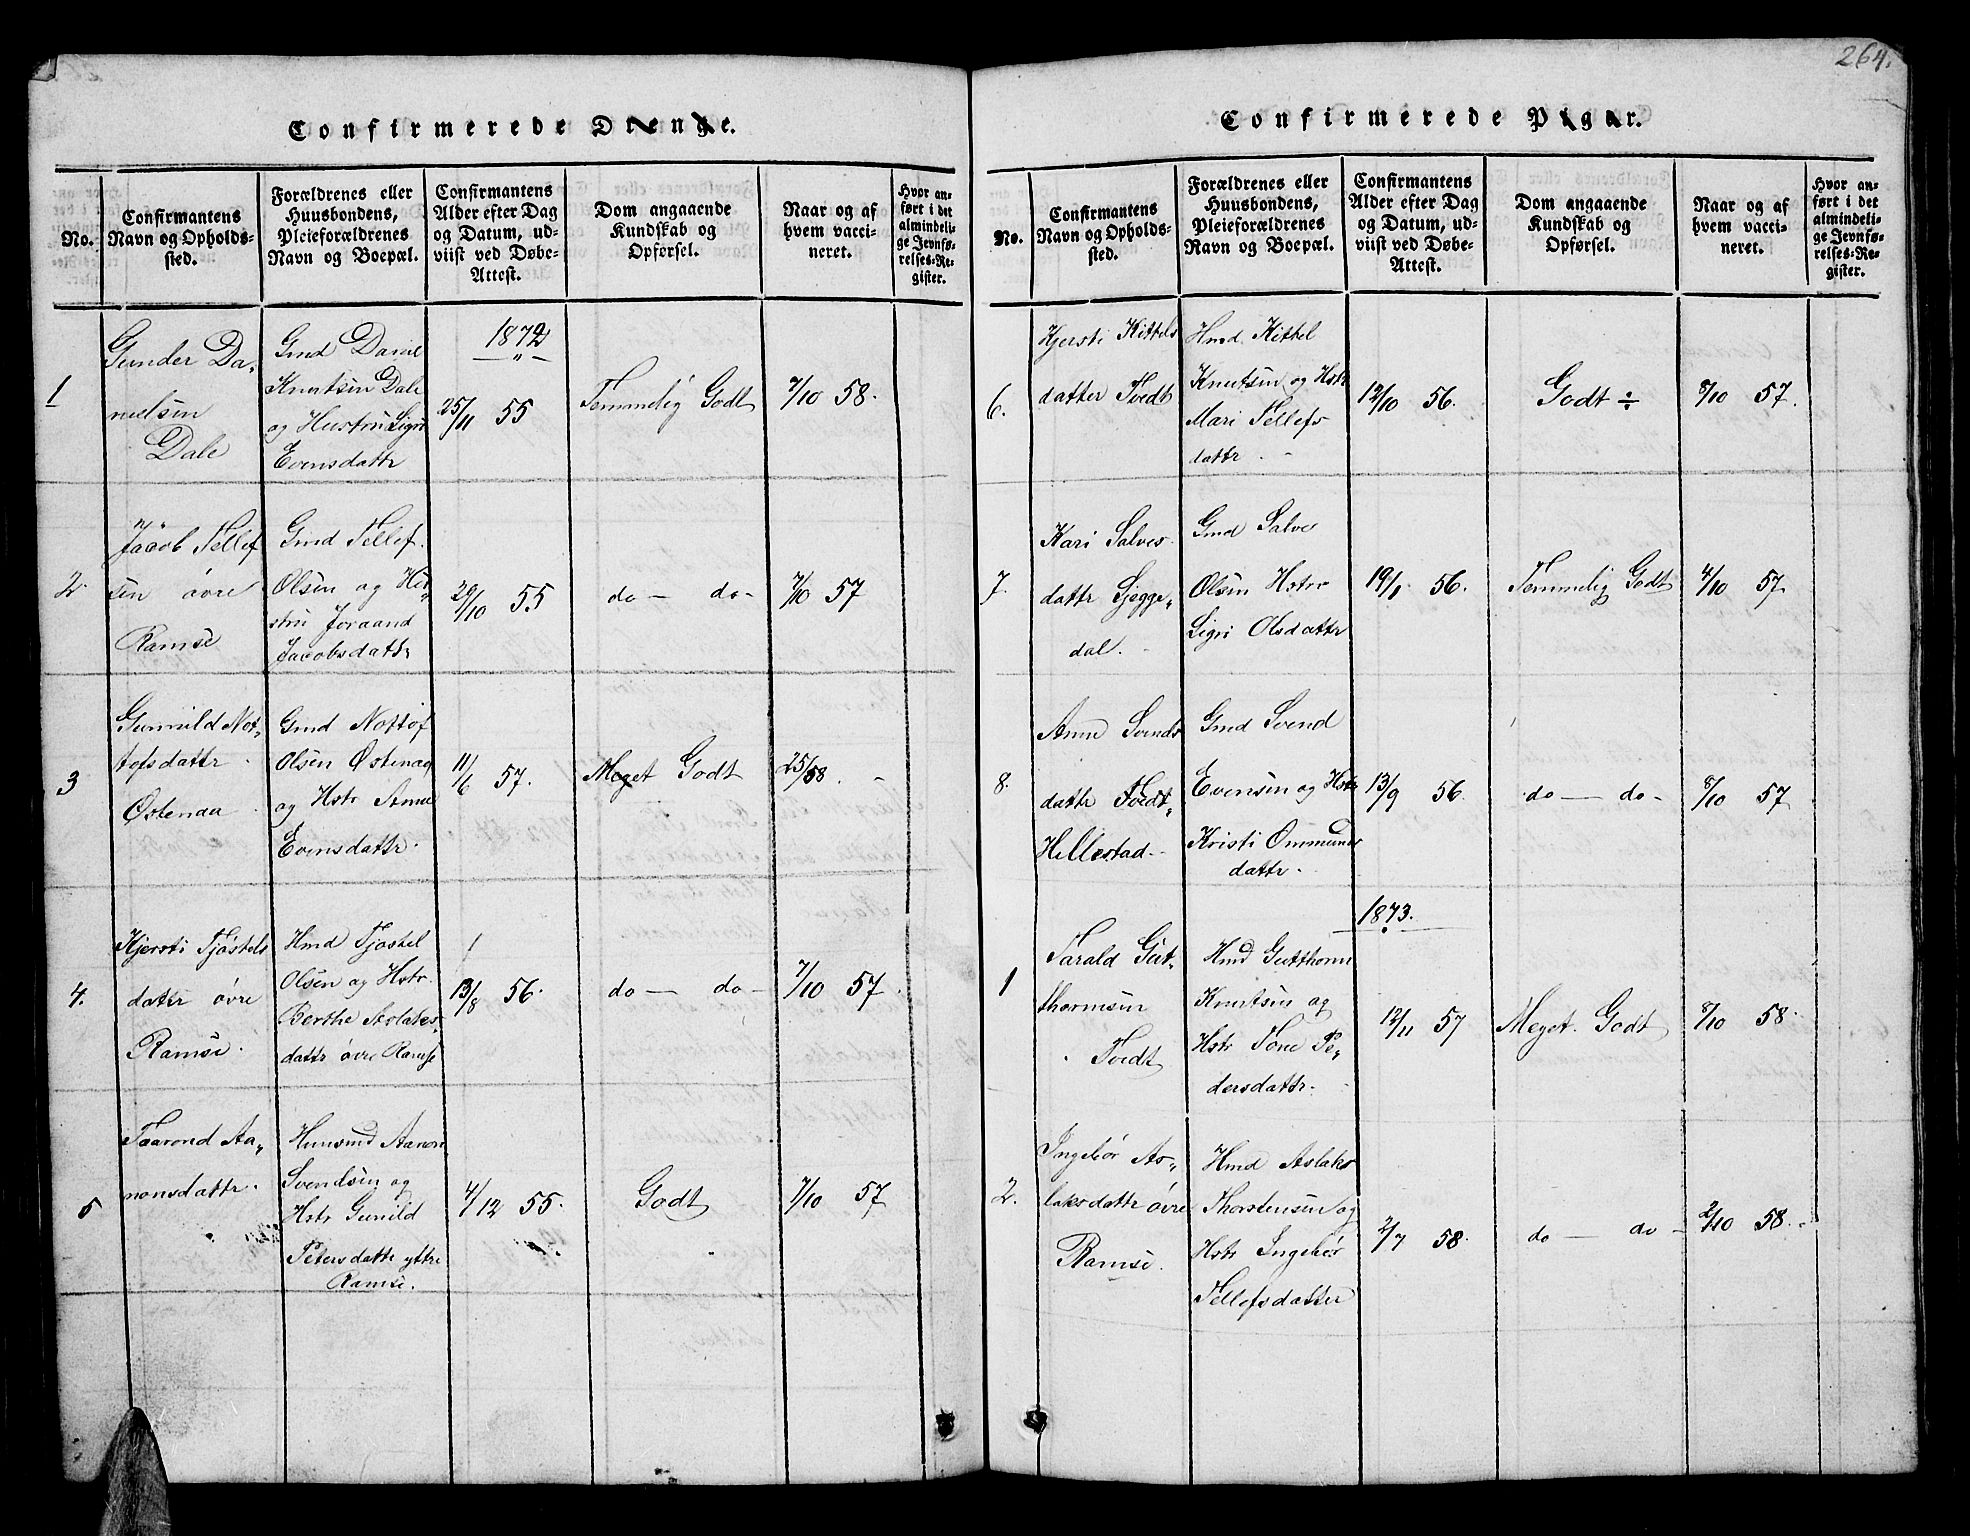 264.
Confirmerede Drenge.
No.
Confirmantens
Navn og Opholds-
sted.
Forældrenes eller
Huusbondens,
Pleieforældrenes
Navn og Boepæl.
Confirmantens
Alder efter Dag
og Datum, ud-
viist ved Døbe-
Attest.
Dom angaaende
Kundskab og
Opførsel.
Naar og af
hvem vacci-
neret.
Hvor an-
ført i det
almindeli-
ge Jevnfø-
relses-Re-
gister.
1872
1
Gunder Da-
nielsen
Dale
Gmd Daniel
Knutsen Dale
og Hustru Sigri
Evensdattr
25/11 55
Temmelig Godt
7/10 58.
2.
Jacob Tellef
sen øvre
Ramse
Gmd Tellef
Olsen og Hu-
stru Joraand
Jacobsdattr
29/10 55
do — do -
7/10 57
3
Gunnild Not-
tofsdattr
Østenaa
Gmd Nottof
Olsen Østenaa
og Hstr Anne
Evensdattr.
11/6 57.
Meget Godt
25/5 58.
4.
Kjersti Tjøstels
dattr øvre
Ramse.
Hmd Tjøstel
Olsen og Hstr.
Berthe Aslaks-
dattr øvre Ramse
13/8 56.
do — do -
7/10 57.
5
Taarond Aa-
nonsdattr.
Huusmd Aanon
Svendsen og
Hstr Gunild
Petersdattr yttre
Ramse.
4/12 55.
Godt
7/10 57
Confirmerede Piger.
No.
Confirmantens
Navn og Opholds-
sted.
Forældrenes eller
Huusbondens,
Pleieforældrenes
Navn og Boepæl.
Confirmantens
Alder efter Dag
og Datum, ud-
viist ved Døbe-
Attest.
Dom angaaende
Kundskab og
Opførsel.
Naar og af
hvem vacci-
neret.
Hvor an-
ført i det
almindeli-
ge Jevnfø-
relses-Re-
gister.
6.
Kjersti Kittels
datter Tvedt
Hmd. Kittel
Knutsen og Hstr
Mari Tellefs
dattr.
12/10 56.
Godt ÷
8/10 57.
7.
Kari Salves
dattr Sjegge-
dal.
Gmd Salve
Olsen Hstr
Sigri Olsdattr
19/1 56.
Temmelig Godt
4/10 57.
8.
Anne Svends
dattr Tvedt-
Hillestad
Gmd Svend
Evensen og Hstr
Kristi Ommunds
dattr.
13/9 56.
do — do -
8/10 57
1873.
1
Tarald Gut-
thormsen
Tvedt
Hmd Gutthorm
Knutsen og
Hstr Tone Pe-
dersdattr.
12/11 57
Meget Godt
8/10 58.
2.
Ingebør As-
laksdattr øvre
Ramse.
Hmd Aslaks
Thorstensen og
Hstr Ingebør
Tellefsdatter
2/7 58.
do — do -
2/10 58.